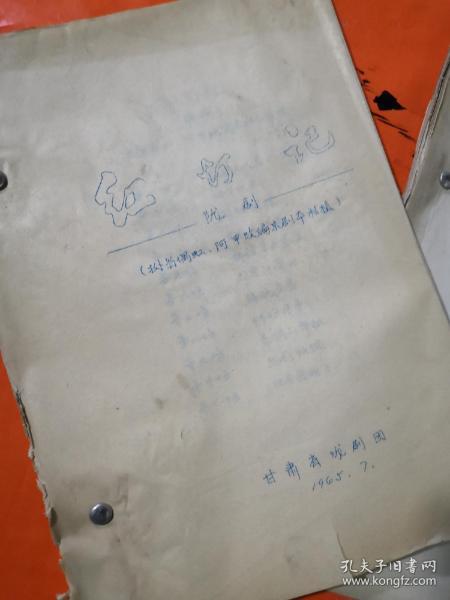 红灯记
陇剧
(据翁偶虹、阿甲改编京剧本移植)
甘肃省陇剧团
1965.7.
孔夫子旧书网
www.kongfz.com